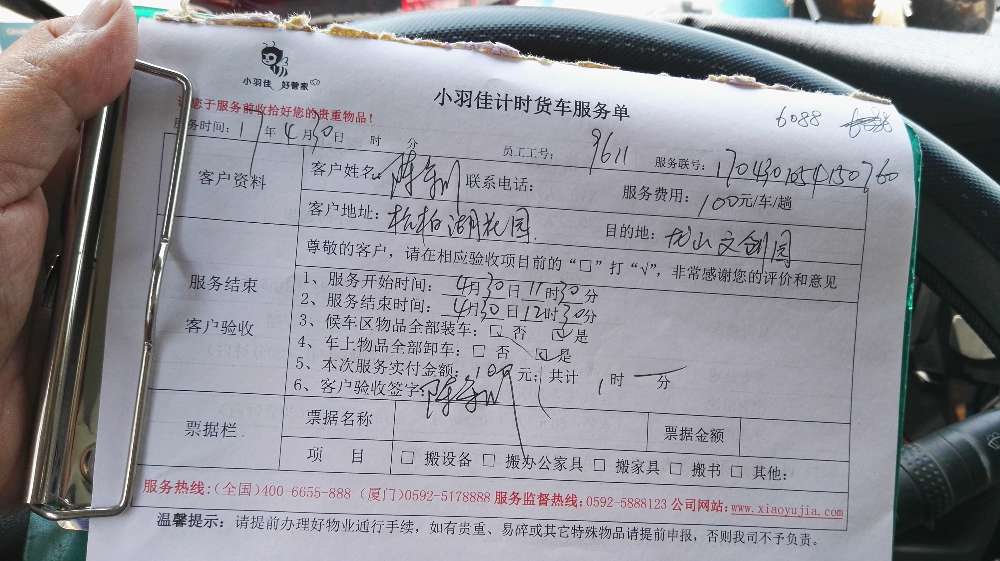 小羽佳 好管家
小羽佳计时货车服务单
6088
请您于服务前收拾好您的贵重物品！
服务时间：17年4月30日 时 分 员工工号：9611 服务联号：1704301054150760
客户资料 客户姓名： 陈 联系电话： 服务费用：100元/车/趟
客户地址：杭柏湖花园 目的地：龙山文创园
尊敬的客户，请在相应验收项目前的“□”打“√”，非常感谢您的评价和意见
服务结束
客户验收
1、服务开始时间：4月30日11时30分
2、服务结束时间：4月30日12时30分
3、候车区物品全部装车：□ 否 ☑是
4、车上物品全部卸车：□ 否 ☑是
5、本次服务实付金额：100元；共计 1时 一 分
6、客户验收签字： 陈
票据栏 票据名称 票据金额
项 目 □ 搬设备 □ 搬办公家具 □ 搬家具 □ 搬书 □ 其他：
服务热线：（全国）400-6655-888 （厦门）0592-5178888 服务监督热线：0592-5888123 公司网站：www.xiaoyujia.com
温馨提示：请提前办理好物业通行手续，如有贵重、易碎或其它特殊物品请提前申报，否则我司不予负责。